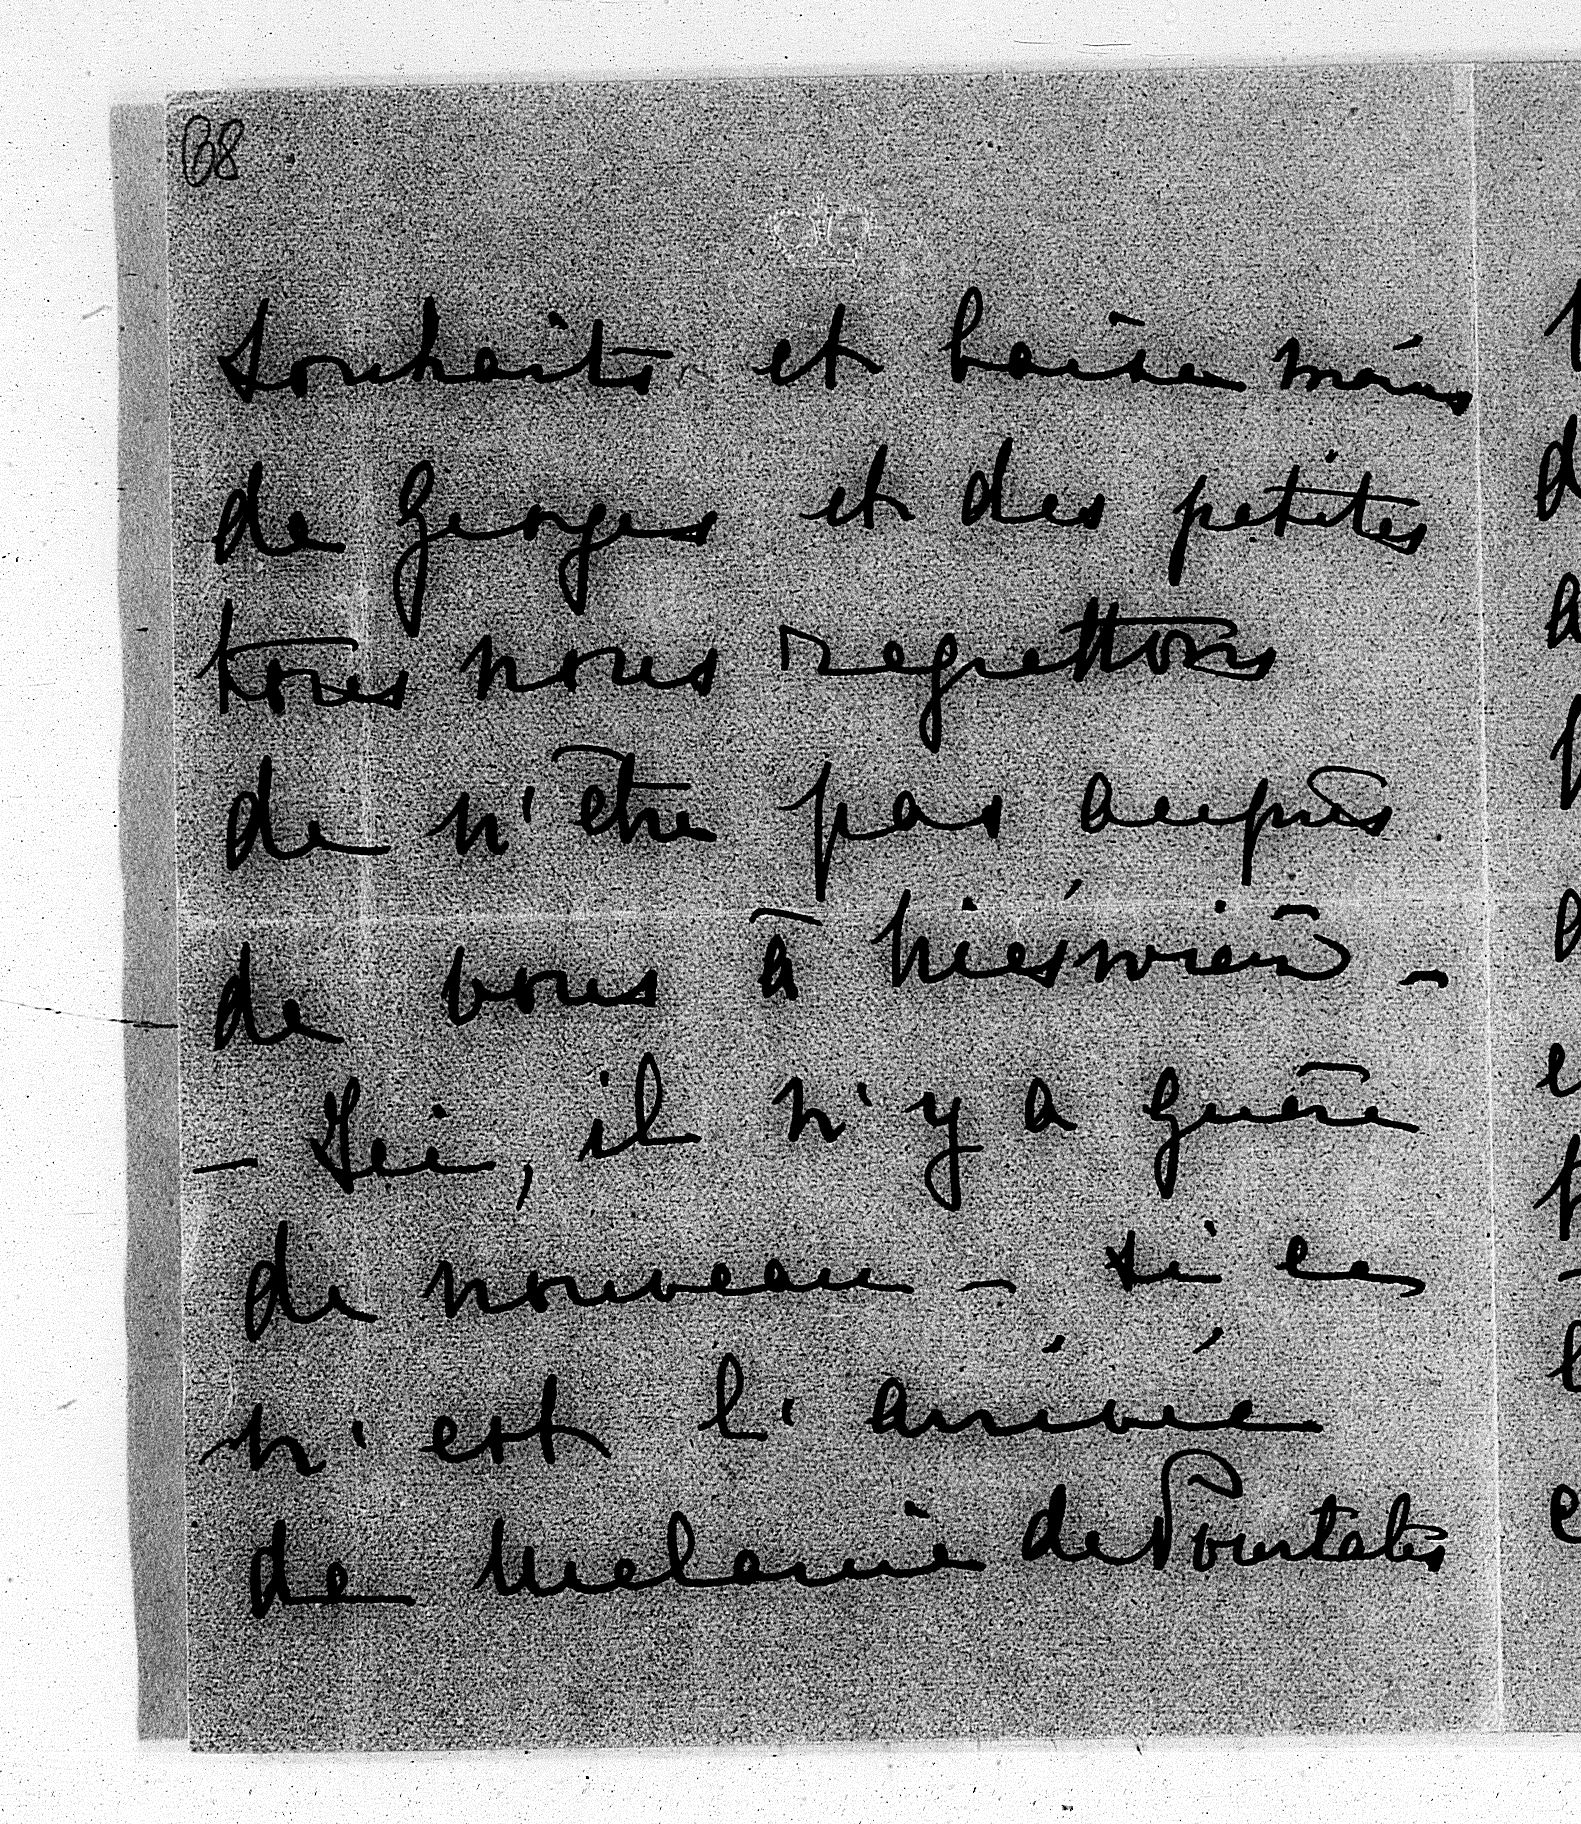 B8
souhaits et baise mains
de Georges et des petites
tous nous regrettons
de n'être pas auprès
de vous à Nieswiez -
- Ici, il n'y a guère
de nouveau - si ce
n'est l'arrivée
de Melanie de Pourtales